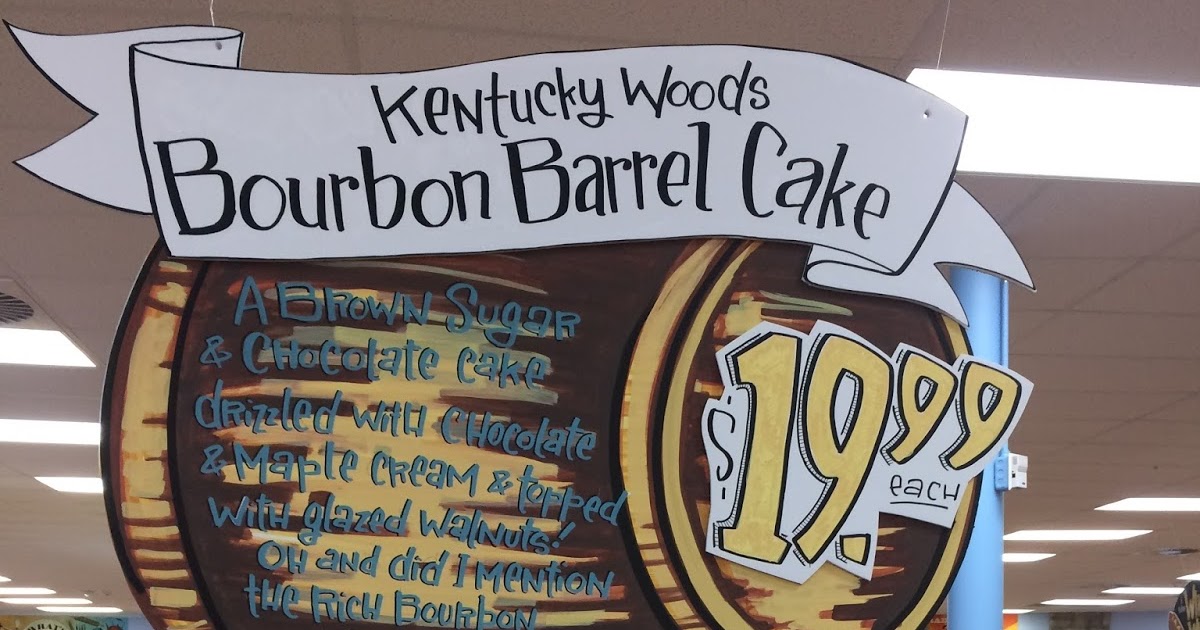 Kentucky Woods
Bourbon Barrel Cake
A Brown Sugar
& Chocolate cake
drizzled with Chocolate
& Maple cream & topped
with glazed walnuts!
Oh and did I mention
the Rich Bourbon
$19.99
each